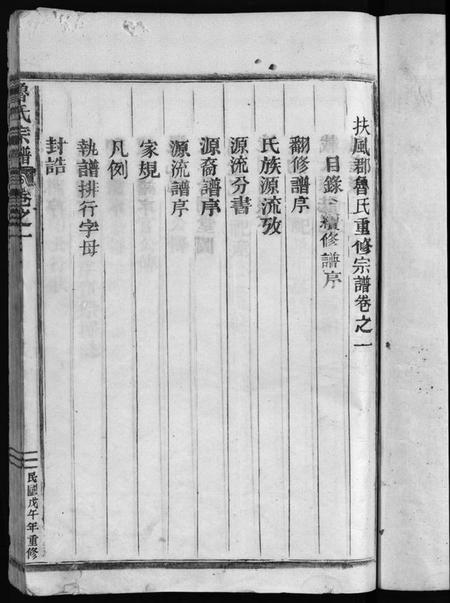 扶風郡魯氏重修宗譜卷之一
目錄 續修譜序
翻修譜序
氏族源流攷
源流分書
源裔譜序
源流譜序
家規
凡例
執譜排行字母
封誥
魯氏宗譜 卷之一
民國戊午年重修